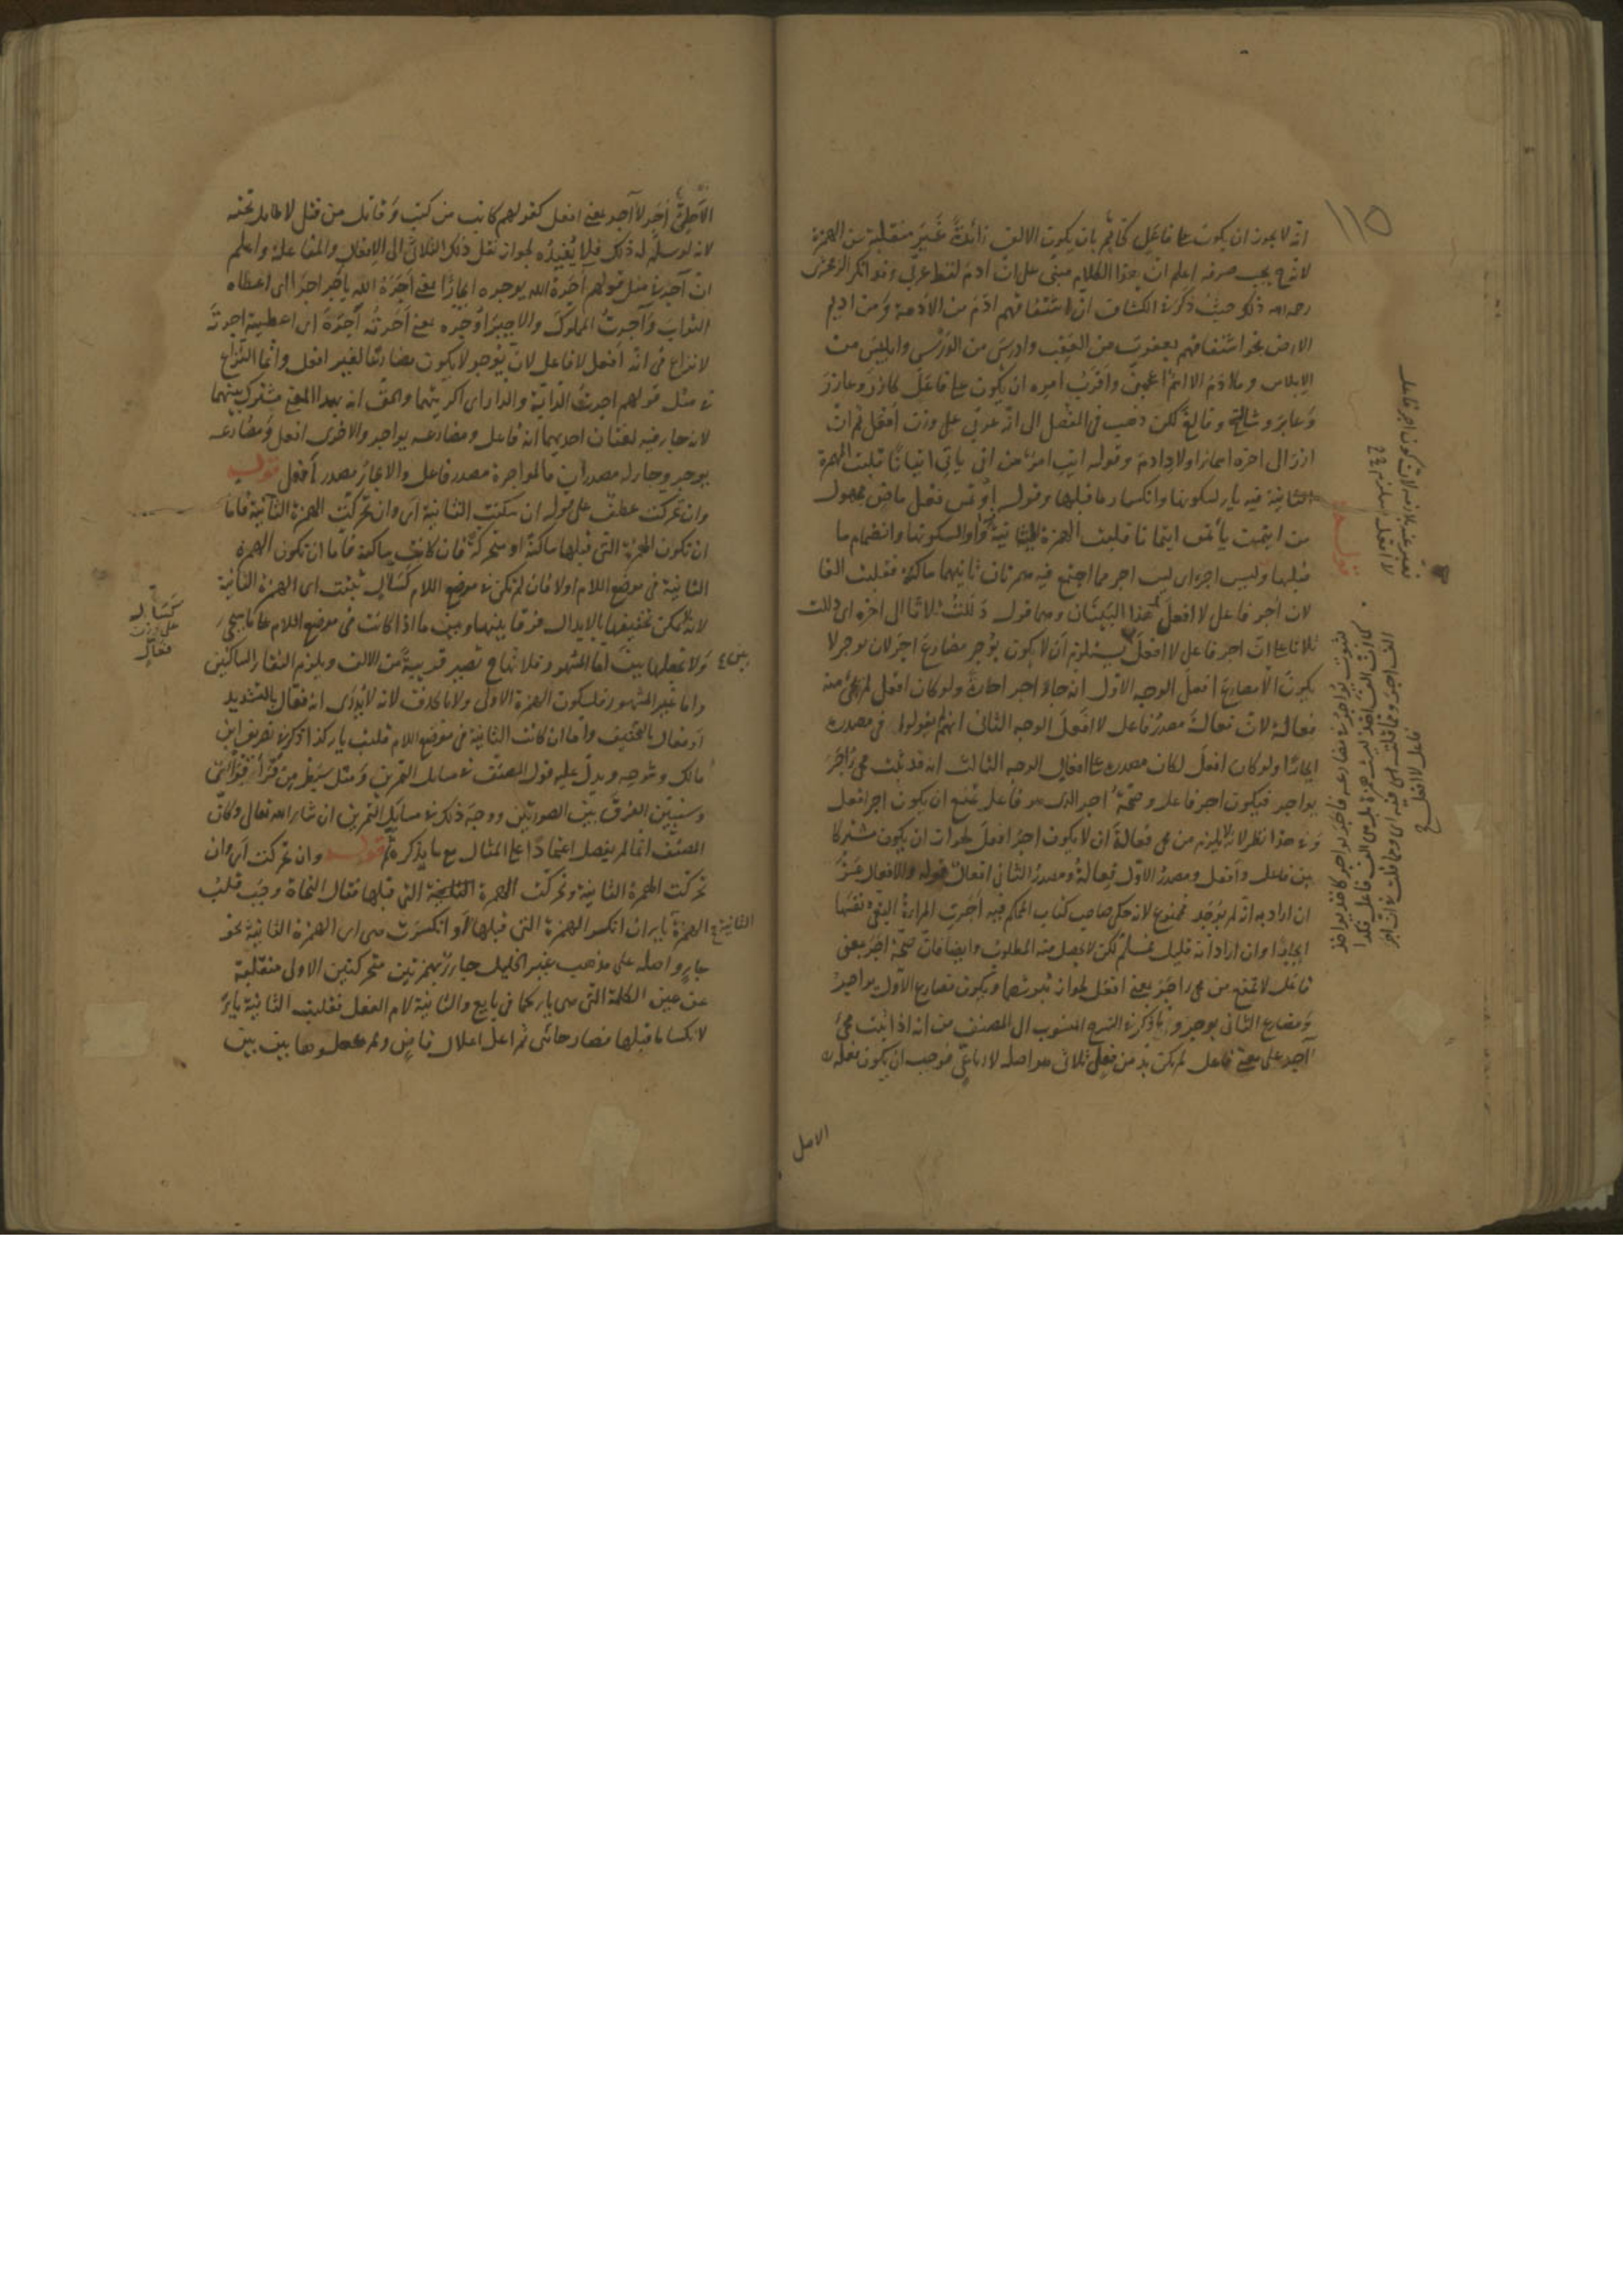 ١١٥
انه لا يجوز ان يكون على فاعل كخاتم بان يكون الالف زائدة غير منقلبة من الهمزة
لانه ح يجب صرفه اعلم ان هذا الكلام مبنى على ان ادم لفظ عربى وقد انكر الزمخشرى
رحمه الله ذلك حيث ذكر فى الكشاف ان اشتقاقهم ادم من الادمة ومن اديم
الارض نحو اشتقاقهم يعقوب من العقب وادريس من الدرس وابليس من
الابلاس وما ادم الا اسم اعجمى واقرب امره ان يكون على فاعل كازر وعازر
وعابر وشالخ وفالغ لكن ذهب فى المفصل الى انه عربى على وزن افعل ثم ان
ازر الى اخره اسماء اولاد ادم وقوله ايت امر من اتى ياتى اتيانا قلبت الهمزة
الثانية فيه ياء لسكونها وانكسار ما قبلها وقوله اوتمن فعل ماض مجهول
من ايتمن يأتمن ايتمانا قلبت الهمزة الثانية واوا لسكونها وانضمام ما
قبلها وليس اجر اى ليس اجر مما اجتمع فيه همزتان ثانيهما ساكنة فقلبت الفا
لان اجر فاعل لا افعل هذا البيتان وهما قوله دللت ثلاثا الى اخره اى دللت
ثلاثا على ان اجر فاعل لا افعل يستلزم ان لا يكون يؤجر مضارع اجر لان يوجر لا
يكون الا مضارع افعل الوجه الاول انه جاء اجر اجارة ولو كان افعل لم يجئ منه
فعالة لان فعالة مصدر فاعل لا افعل الوجه الثانى انهم لم يقولوا فى مصدره
ايجارا ولو كان افعل لكان مصدره على افعال الوجه الثالث انه قد ثبت مجئ اجر
يواجر فيكون اجر فاعلا وصحة اجر الذى هو فاعل تمنع ان يكون اجر افعل
وفى هذا نظر لانه لا يلزم من مجئ فعالة ان لا يكون اجر افعل لجواز ان يكون مشتركا
بين فاعل وافعل ومصدر الاول فعالة ومصدر الثانى افعال قوله والافعال عز
ان اراد به انه لم يوجد فممنوع لانه حكى صاحب كتاب المحكم فيه اجرت المراة البغى نفسها
ايجارا وان اراد انه قليل فمسلم لكن لا يحصل منه المطلوب وايضا فان صحة اجر بمعنى
فاعل لا تمنع من مجئ اجر بمعنى افعل لجواز ثبوتهما ويكون مضارع الاول يواجر
ومضارع الثانى يوجر وما ذكر فى الشرح المنسوب الى المصنف من انه اذا ثبت مجئ
آجر على معنى فاعل لم يكن بد من فعل ثلاثى هو اصله لا رباعى فوجب ان يكون فعله
الاصل
اجر لا آجر بمعنى افعل كقولهم كاتب من كتب وقاتل من قتل لا طايل تحته
لانه لو سلم له ذلك فلا يفيده لجواز نقل ذلك الثلاثى الى الافعال والمفاعلة واعلم
ان آجر فى مثل قولهم آجره الله يوجره ايجارا بمعنى اجره الله ياجر اجرا اى اعطاه
الثواب وآجرت المملوك والاجير اوجره بمعنى اجرته آجره اى اعطيته اجرته
لا نزاع فى انه افعل لا فاعل لان يوجر لا يكون مضارعا لغير افعل وانما النزاع
فى مثل قولهم اجرت الدابة والدار اى اكريتهما والحق انه بهذا المعنى مشترك بينهما
لانه جاء فيه لغتان احديهما انه فاعل ومضارعه يواجر والاخرى افعل ومضارعه
يوجر وجاء له مصدران فالمواجرة مصدر فاعل والايجار مصدر افعل قوله
وان تحركت عطف على قوله ان سكنت الثانية اى وان تحركت الهمزة الثانية فاما
ان تكون الهمزة التى قبلها ساكنة او متحركة فان كانت ساكنة فاما ان تكون الهمزة
الثانية فى موضع اللام اولا فان لم تكن فى موضع اللام كسئال ثبتت اى الهمزة الثانية
لانه لا يمكن تخفيفها بالابدال فرقا بينها وبين ما اذا كانت فى موضع اللام على ما سيجئ
ولا تجعلها بين بين اما المشهور فلانها ح تصير قريبة من الالف ويلزم التقاء الساكنين
واما غير المشهور فلسكون الهمزة الاولى ولا بالحذف لانه لا يدرى انه فعال بالتشديد
او فعال بالتخفيف واما ان كانت الثانية فى موضع اللام قلبت ياء كذا ذكر فى تصريف ابن
مالك وشرحه ويدل عليه قول المصنف فى مسايل التمرين ومثل سبطر من قرأ قرأى
وسنبين الفرق بين الصورتين ووجه ذلك فى مسايل التمرين ان شاء الله تعالى وكان
المصنف انما لم يفصل اعتمادا على المثال مع ما يذكره ثم قوله وان تحركت اى وان
تحركت الهمزة الثانية وتحركت الهمزة التى قبلها فقال النحاة وجب قلب
الهمزة الثانية ياء ان انكسر الهمزة التى قبلها او انكسرت هى اى الهمزة الثانية نحو
جاء واصله على مذهب غير الخليل جايئ بهمزتين متحركتين الاولى منقلبة
عن عين الكلمة التى هى ياء كما فى بايع والثانية لام الفعل فقلبت الثانية ياء
لانكسار ما قبلها فصار جائى ثم اعل اعلال قاض ولم يجعلوها بين بين
كسئال
على وزن
فعال